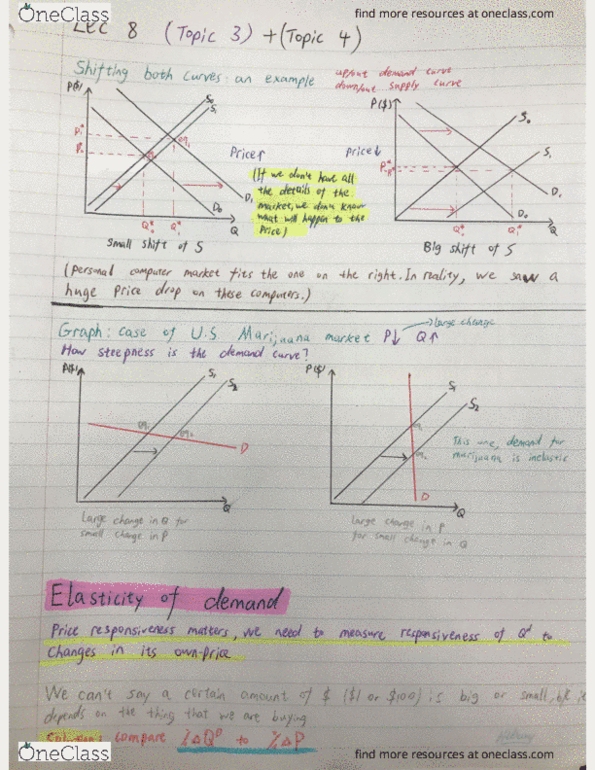 OneClass
find more resources at oneclass.com
LEC 8 (Topic 3) + (Topic 4)
Shifting both curves: an example
up/out demand curve
down/out supply curve
P($)
P($)
S₀
S₁
S₀
S₁
P₁*
P₀*
eq₁
Price↑
Price↓
(If we don't have all
the details of the
market, we don't know
what will happen to the
Price)
D₁
D₀
Q
Q₀*
Q₁*
D₁
D₀
Q
Q₀*
Q₁*
Small shift of S
Big shift of S
(personal computer market fits the one on the right. In reality, we saw a
huge price drop on these computers.)
Graph: case of U.S. Marijuana market P↓ Q↑
→large change
How steepness is the demand curve?
P($)
S₁
S₂
eq₁
eq₂
D
Q
P($)
S₁
S₂
eq₁
eq₂
D
Q
This one, demand for
marijuana is inelastic
Large change in Q for
small change in P
large change in P
for small change in Q
Elasticity of demand
Price responsiveness matters, we need to measure responsiveness of Qᵈ to
changes in its own-price
We can't say a certain amount of $ ($1 or $100) is big or small, b/c it
depends on the thing that we are buying
Solution: compare %ΔQᴰ to %ΔP
OneClass
find more resources at oneclass.com